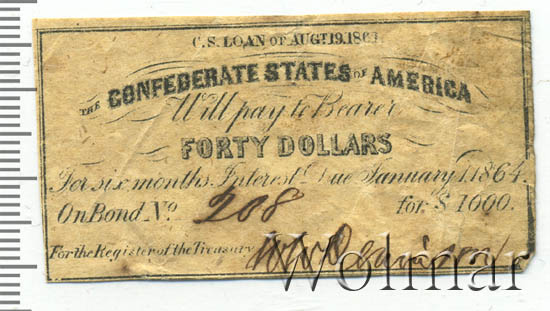 C.S. LOAN OF AUGT. 19. 1861
THE CONFEDERATE STATES OF AMERICA
Will pay to Bearer
FORTY DOLLARS
For six months Interest Due January 1 1864.
On Bond No. 208 for $1000.
For the Register of the Treasury
Wolmar